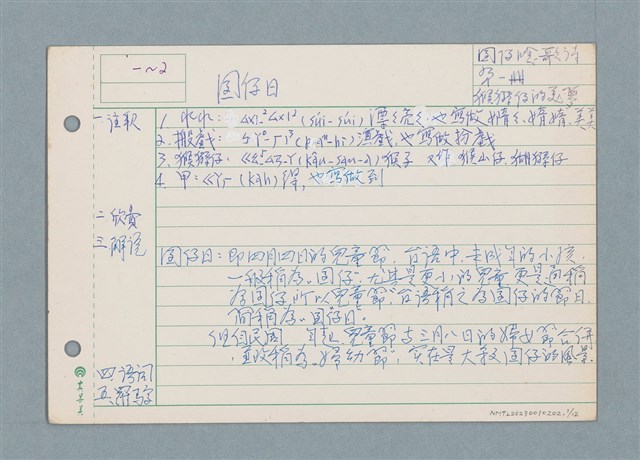 一~2
囡仔唸歌詩
第一冊
猴猴仔的夫
囡仔日
一注釈
1. 水水: ㄨㄨ (súi-súi) 漂亮, 也寫做婧, 婿婿, 美美
2. 搬戲: (puaⁿ-hì) 演戲, 也寫做扮戲
3. 猴猴仔: (kâu-sán-á) 猴子 又作猴山仔, 猢猻仔
4. 甲: (kah) 得, 也寫做到
二欣賞
三解說
囡仔日: 即四月四日的兒童節, 台語中, 未成年的小孩,
一般稱為"囡仔"尤其是更小的兒童更是同稱
為囡仔所以兒童節台語稱之為囡仔的節日,
簡稱為"囡仔日"
但自民國 年起, 兒童節与三月八日的婦女節合併
並改稱為"婦幼節", 實在是大殺囡仔的風景.
四語詞
五
NMTL20230010202.1/12